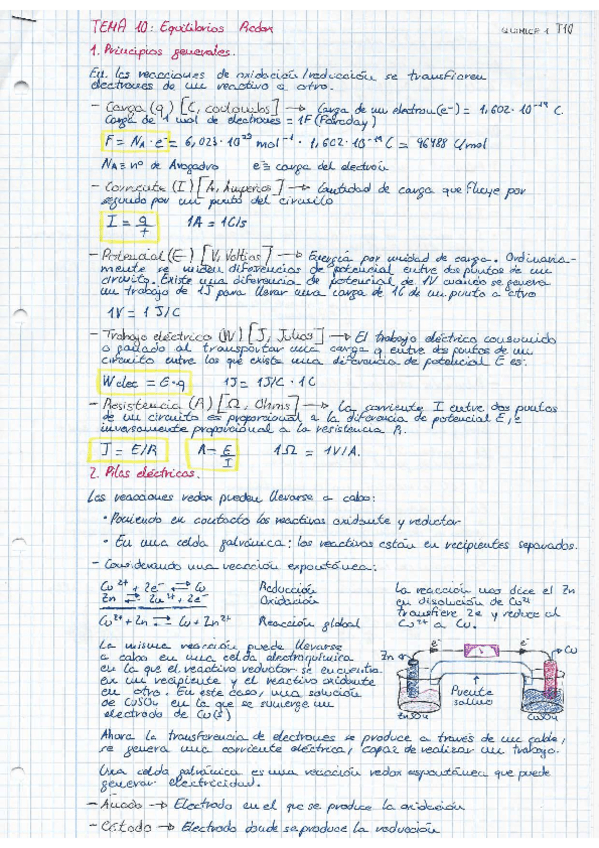 TEMA 10: Equilibrios Redox
QUIMICA 1 T10
1. Principios generales.
En las reacciones de oxidación/reducción se transfieren
electrones de un reactivo a otro.
- Carga (q) [C, coulombs] → Carga de un electron (e⁻) = 1,602·10⁻¹⁹ C
Carga de 1 mol de electrones = 1F (Faraday)
F = NA · e⁻ = 6,023·10²³ mol⁻¹ · 1,602·10⁻¹⁹ C = 96488 C/mol
NA ≡ nº de Avogadro e ≡ carga del electrón
- Corriente (I) [A, Amperios] → Cantidad de carga que fluye por
segundo por un punto del circuito
I = q/t 1A = 1C/s
- Potencial (E) [V, Voltios] → Energía por unidad de carga. Ordinaria-
mente se miden diferencias de potencial entre dos puntos de un
circuito. Existe una diferencia de potencial de 1V cuando se genera
un trabajo de 1J para llevar una carga de 1C de un punto a otro
1V = 1 J/C
- Trabajo eléctrico (W) [J, Julios] → El trabajo eléctrico consumido
o gastado al transportar una carga q entre dos puntos de un
circuito entre los que existe una diferencia de potencial E es:
Welec = E·q 1J = 1J/C · 1C
- Resistencia (R) [Ω, Ohms] → La corriente I entre dos puntos
de un circuito es proporcional a la diferencia de potencial E, e
inversamente proporcional a la resistencia R.
I = E/R R = E/I 1Ω = 1V/A.
2. Pilas eléctricas.
Las reacciones redox pueden llevarse a cabo:
· Poniendo en contacto los reactivos oxidante y reductor
· En una celda galvánica: los reactivos están en recipientes separados.
- Considerando una reacción espontánea:
Cu²⁺ + 2e⁻ ⇄ Cu Reducción
Zn ⇄ Zn²⁺ + 2e⁻ Oxidación
Cu²⁺ + Zn ⇄ Cu + Zn²⁺ Reacción global
La reacción nos dice el Zn
en disolución de Cu²⁺
transfiere 2e⁻ y reduce el
Cu²⁺ a Cu.
La misma reacción puede llevarse
a cabo en una celda electroquímica
en la que el reactivo reductor se encuentra
en un recipiente y el reactivo oxidante
en otro. En este caso, una solución
de CuSO₄ en la que se sumerge un
electrodo de Cu(s)
Zn
e⁻
e⁻
Cu
Puente
salino
ZnSO₄
CuSO₄
Ahora la transferencia de electrones se produce a través de un cable,
se genera una corriente eléctrica, capaz de realizar un trabajo.
Una celda galvánica es una reacción redox espontánea que puede
generar electricidad.
- Ánodo → Electrodo en el que se produce la oxidación
- Cátodo → Electrodo donde se produce la reducción